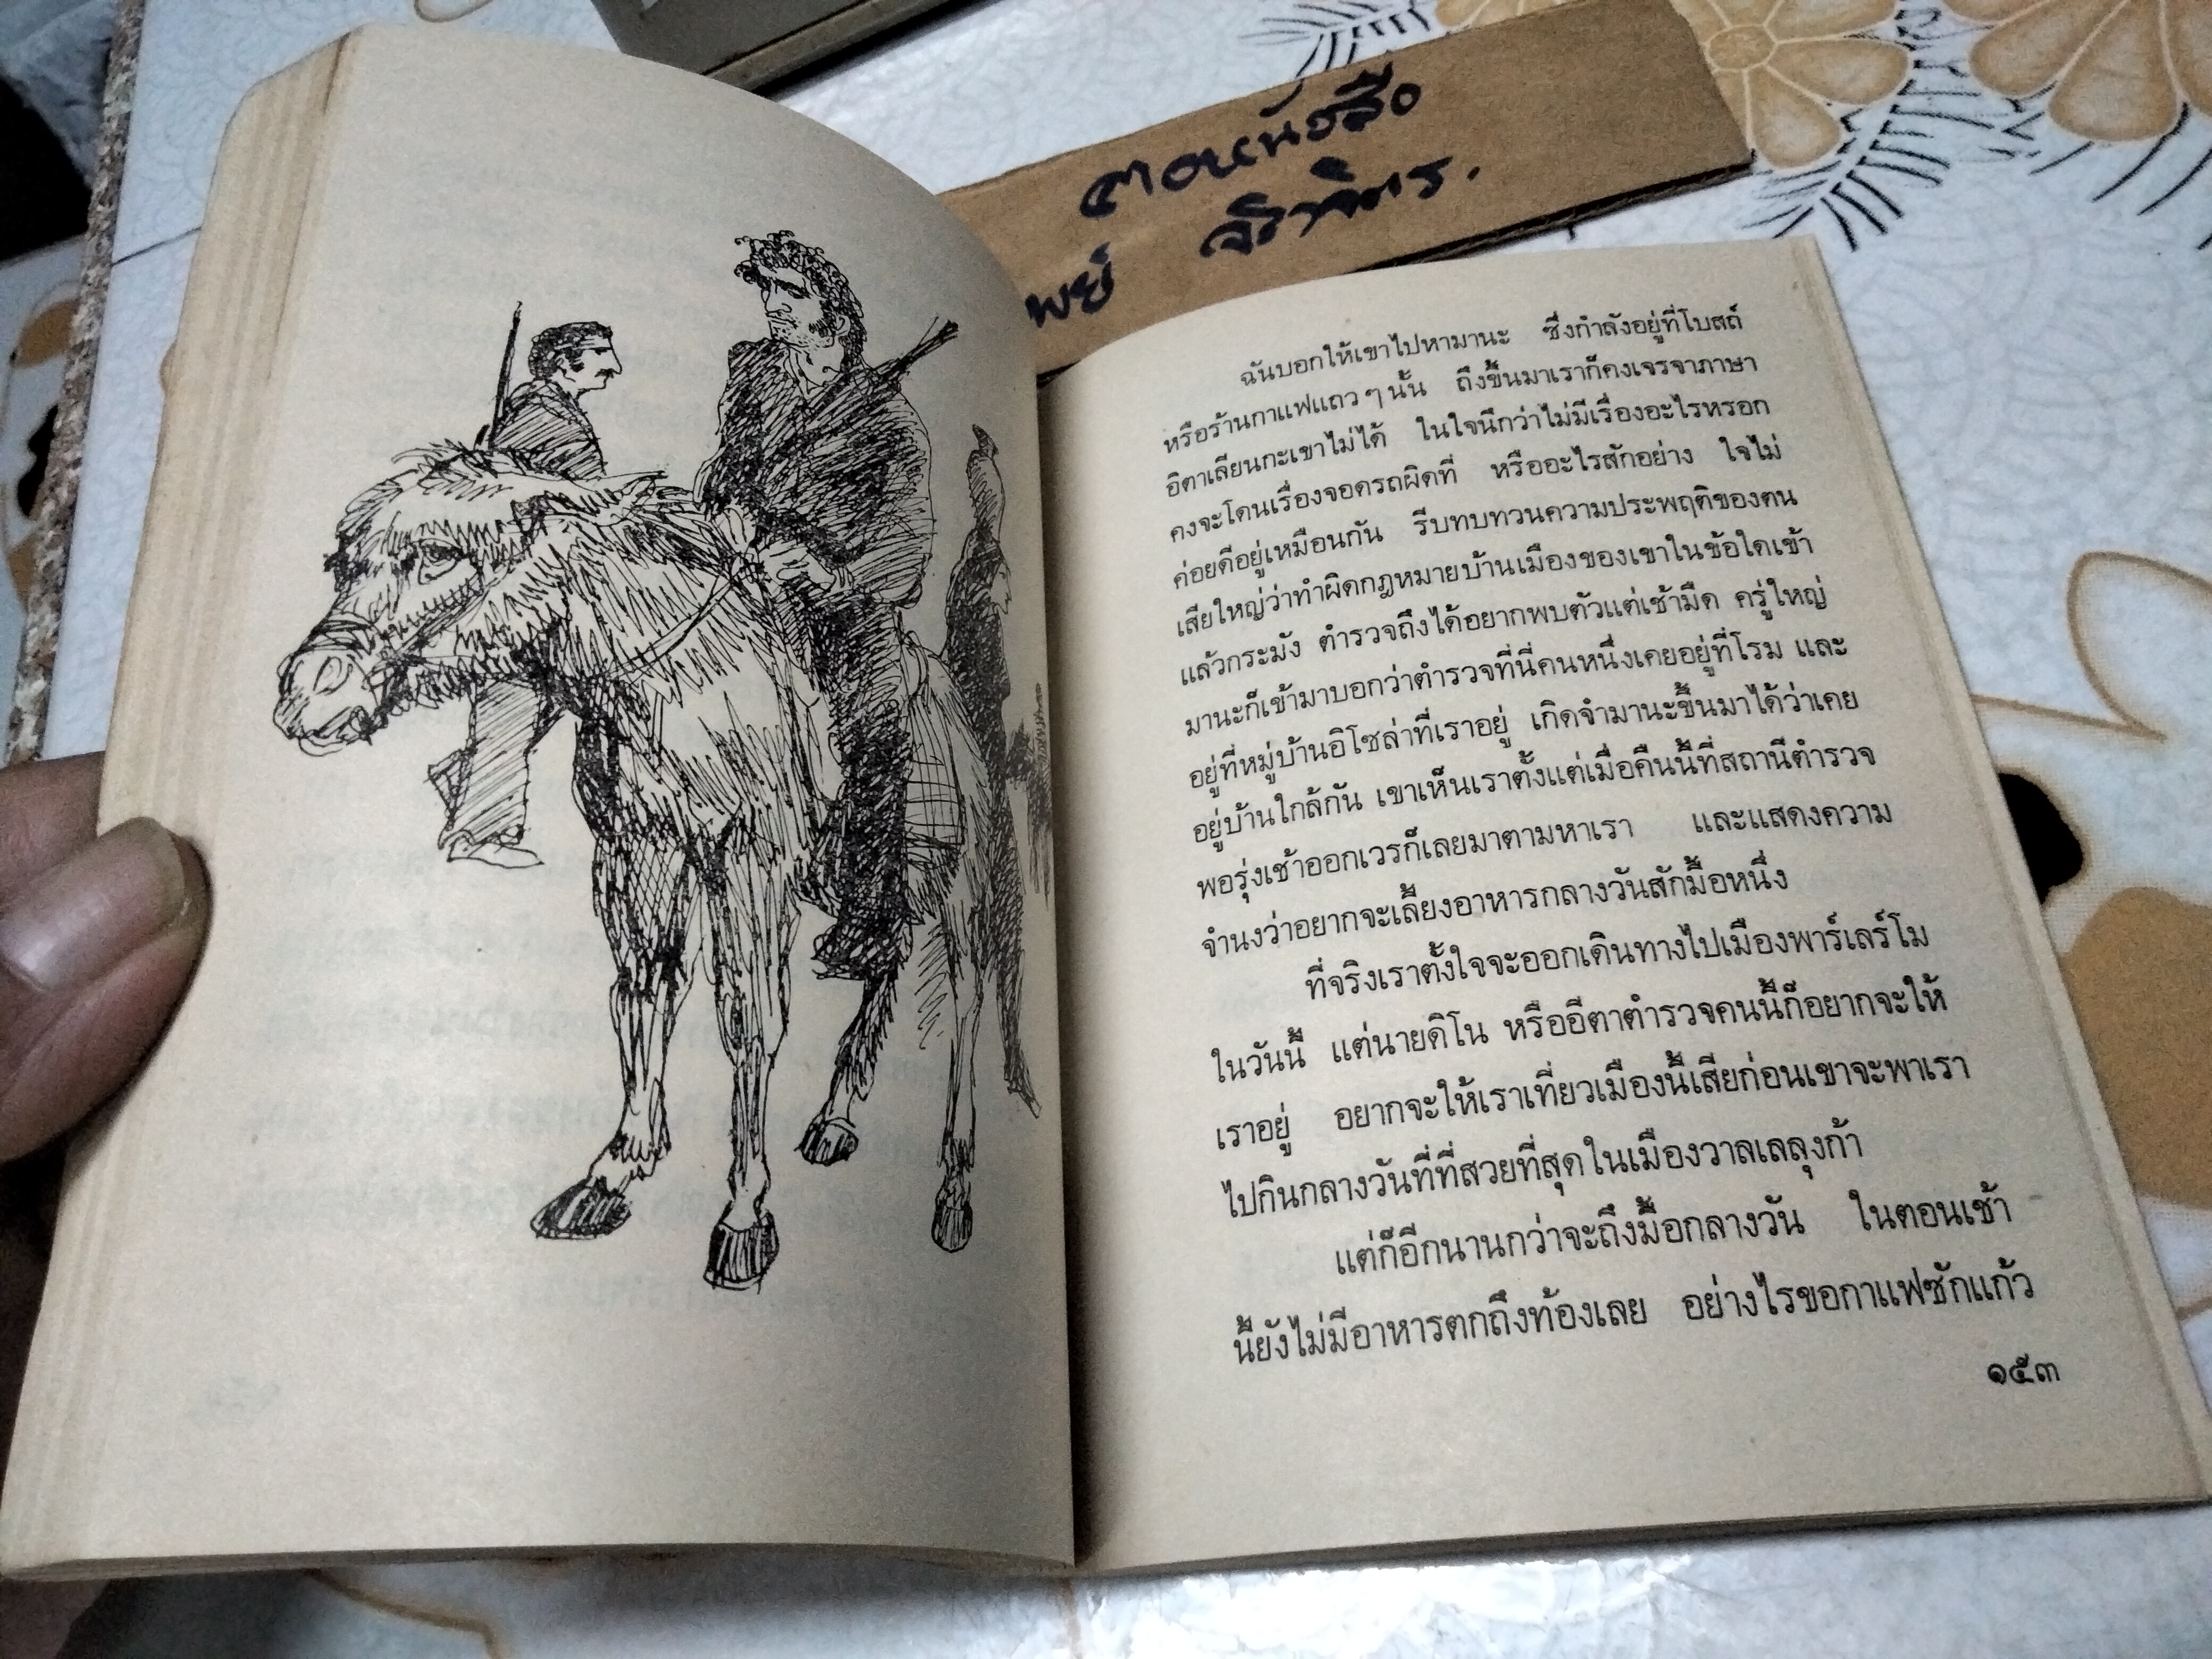 ตอนหนังสือ
พย์ จิราจิตร.
ฉันบอกให้เขาไปหามานะ ซึ่งกำลังอยู่ที่โบสถ์
หรือร้านกาแฟแถวๆนั้น ถึงขึ้นมาเราก็คงเจรจาภาษา
อิตาเลียนกะเขาไม่ได้ ในใจนึกว่าไม่มีเรื่องอะไรหรอก
คงจะโดนเรื่องจอดรถผิดที่ หรืออะไรสักอย่าง ใจไม่
ค่อยดีอยู่เหมือนกัน รีบทบทวนความประพฤติของตน
เสียใหญ่ว่าทำผิดกฎหมายบ้านเมืองของเขาในข้อใดเข้า
แล้วกระมัง ตำรวจถึงได้อยากพบตัวแต่เช้ามืด ครู่ใหญ่
มานะก็เข้ามาบอกว่าตำรวจที่นี่คนหนึ่งเคยอยู่ที่โรม และ
อยู่ที่หมู่บ้านอิโซล่าที่เราอยู่ เกิดจำมานะขึ้นมาได้ว่าเคย
อยู่บ้านใกล้กัน เขาเห็นเราตั้งแต่เมื่อคืนนี้ที่สถานีตำรวจ
พอรุ่งเช้าออกเวรก็เลยมาตามหาเรา และแสดงความ
จำนงว่าอยากจะเลี้ยงอาหารกลางวันสักมื้อหนึ่ง
ที่จริงเราตั้งใจจะออกเดินทางไปเมืองพาร์เลร์โม
ในวันนี้ แต่นายดิโน หรืออีตาตำรวจคนนี้ก็อยากจะให้
เราอยู่ อยากจะให้เราเที่ยวเมืองนี้เสียก่อนเขาจะพาเรา
ไปกินกลางวันที่ที่สวยที่สุดในเมืองวาลเลลุงก้า
แต่ก็อีกนานกว่าจะถึงมื้อกลางวัน ในตอนเช้า
นี้ยังไม่มีอาหารตกถึงท้องเลย อย่างไรขอกาแฟซักแก้ว
๑๕๓